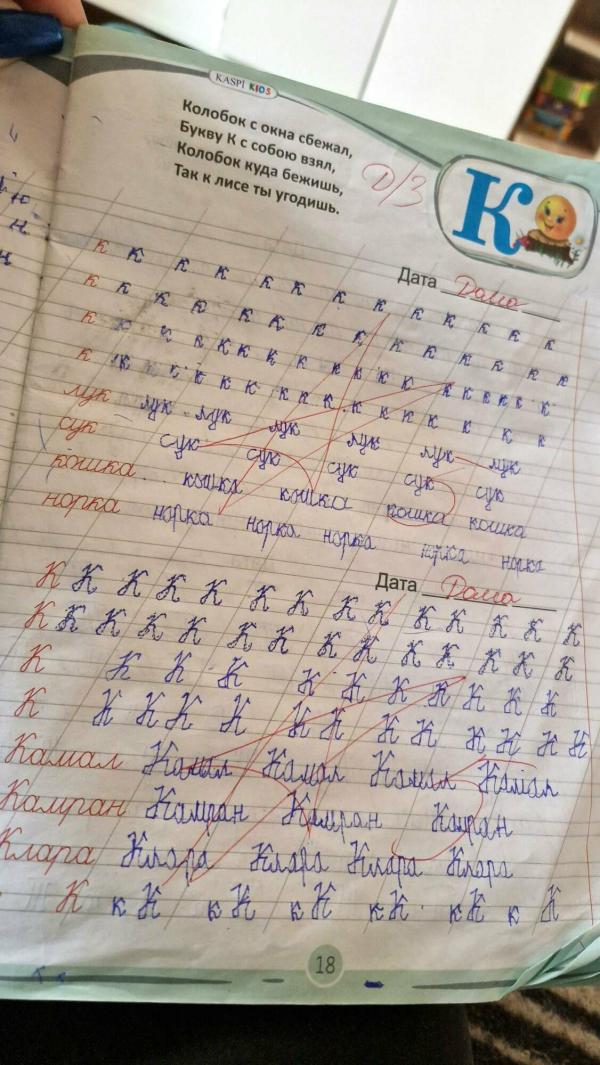 KASPI KIDS
Колобок с окна сбежал,
Букву К с собою взял,
Колобок куда бежишь,
Так к лисе ты угодишь.
Д/З
К
Дата Дома
к к к к к к к к к к к к к
к к к к к к к к к к к к к
к к к к к к к к к к к к к к к к к
к к к к к к к к к к к к к к
лук лук лук лук лук лук лук
сук сук сук сук сук сук
кошка кошка кошка кошка кошка
норка норка норка норка норка норка
Дата Дома
К К К К К К К К К К К К К К
К К К К К К К К К К К К К К
К К К К К К К К К К К К
К К К К К К К К К К К К К
Камал Камал Камал Камал Камал
Камран Камран Камран Камран
Клара Клара Клара Клара Клара
К к К к К к К к К к К к К
18